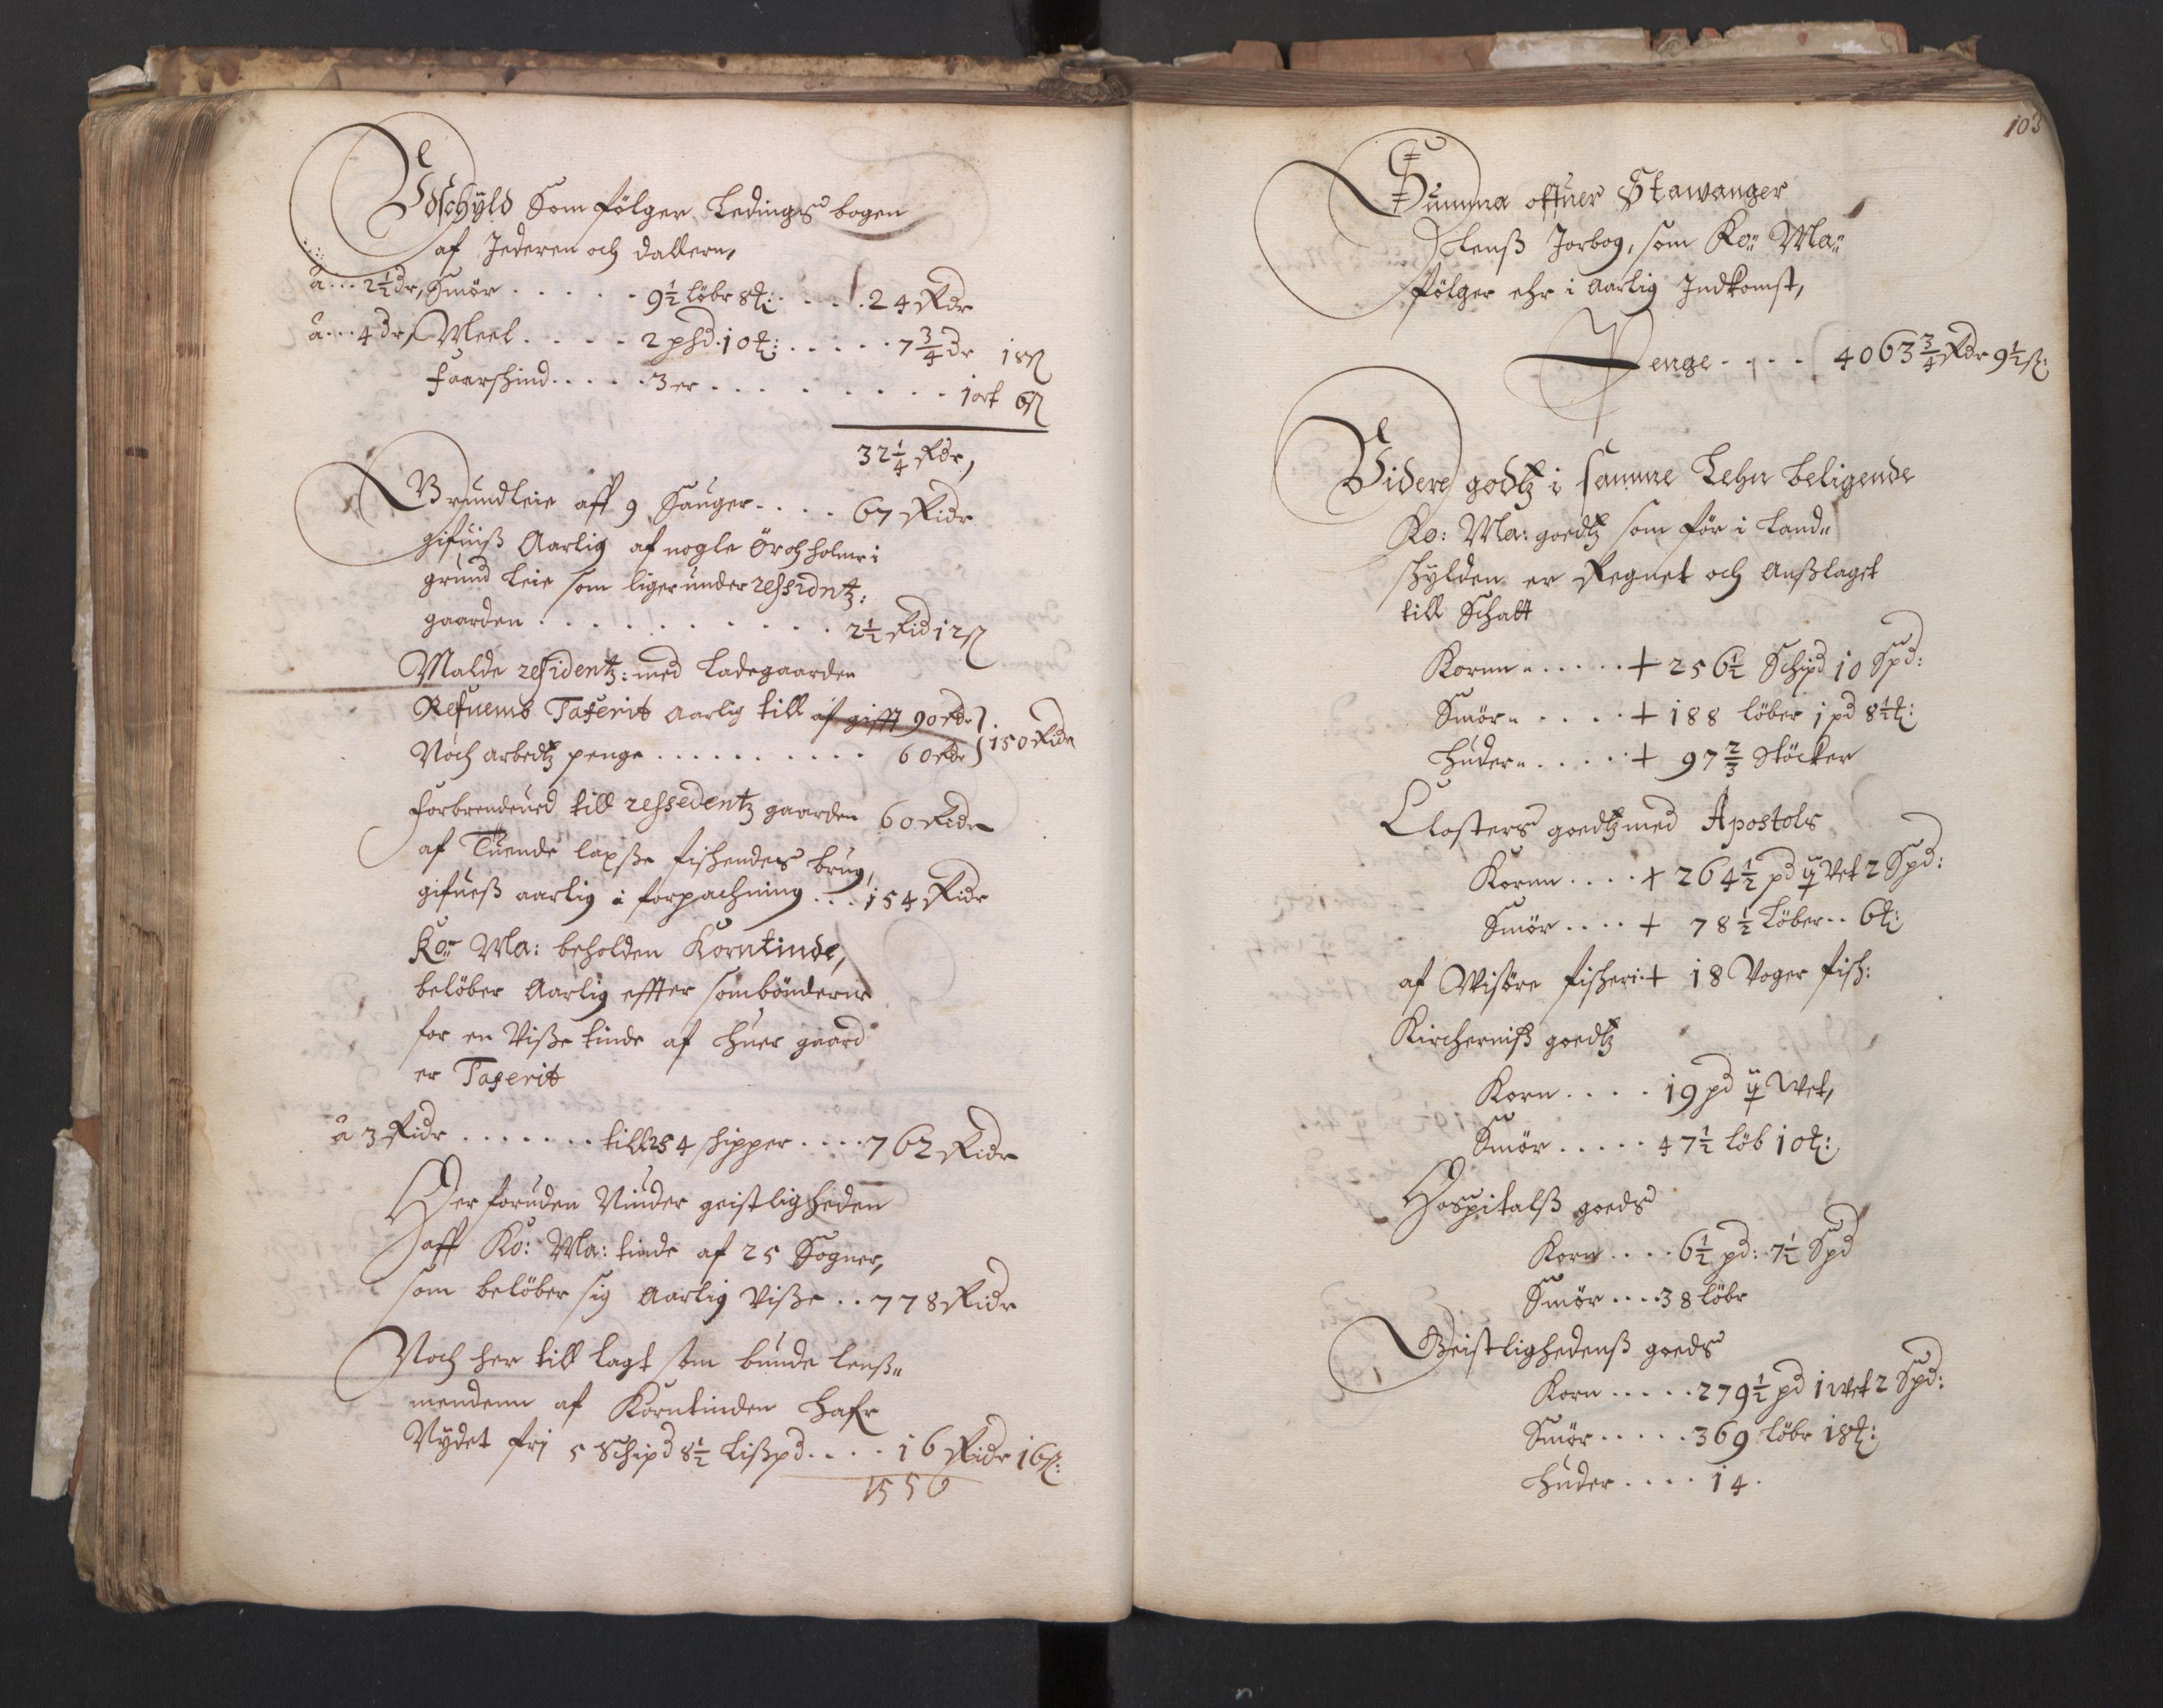 Udschyld Som følger Ledings bogen
af Jederen och dallern,
a... 2½ dr, Smör . . . . . 9½ löbr 8 ℔: . . . . 24 Rdr
a... 4 dr, Meel . . . . . 2 phd. 10 ℔: . . . . . 7¾ dr 18 ß
faarschind . . . . . 3 er . . . . . . . . . 1 ort 6 ß
32¼ Rdr,
Grundleie aff 9 Sauger . . . . 67 Ridr
gifuiß Aarlig af nogle Ör och holmer i
grund Leie som liger under ressidntz:
gaarden . . . . . . . . . . . 2½ Rid 12 ß
Malde residentz: med Ladegaarden
Refuens Taxerit Aarlig till af gifft 90 rdr
Noch arbedtz penge . . . . . . . . . . 60 rdr } 150 Ridr
forbrendeued till ressedentz gaarden 60 Ridr
af Tuende laxße fischendes brug,
gifueß aarlig i forpachtning . . . 154 Ridr
Ko: Ma: beholden Korntinde,
belöber Aarlig effter som bönderne
for en Viße tinde af huer gaard
er Taxerit
a 3 Ridr . . . . . . . till 254 schipper . . . . 762 Ridr
Her foruden Vnder geistligheden
aff Ko: Ma: tinde af 25 Sogner,
som belöber sig Aarlig Viße . . 778 Ridr
Noch her till lagt som bunde lenß-
mendenn af Korntinden hafr
Nydet fri 5 Schipd 8½ Lißpd . . . . 16 Ridr 16 ß:
1556
103
Summa offuer Stawanger
Lenß Jorbog, som Ko: Ma:
følger ehr i Aarlig Indkomst,
Penge . . . . 4063¾ Rdr 9½ ß:
Videre godtz i samme Lehn beligende
Ko: Ma: goedtz som för i Land-
schylden er Regnet och Anßlaget
till Schatt
Kornn . . . . . + 256½ Schipd 10 Spd:
Smör . . . . . + 188 löber 1 pd 8½ ℔:
huder . . . . . + 97⅔ Stöcker
Closters goedtz med Apostols
Kornn . . . . + 264½ pd 4 Vet 2 Spd:
Smör . . . . + 78½ Löber . . 6 ℔:
af Wisöre fischeri + 18 Voger fisch:
Kircherniß goedtz
Korn . . . . 19 pd 4 Wet,
Smör . . . . . 47½ löb 10 ℔:
Hospitalß goeds
Korn . . . . 6½ pd: 7½ Spd
Smör . . . . 38 löbr
Geistlighedenß goeds
Korn . . . . . 279½ pd 1 Wet 2 Spd:
Smör . . . . . 369 löbr 18 ℔:
huder . . . . 14.